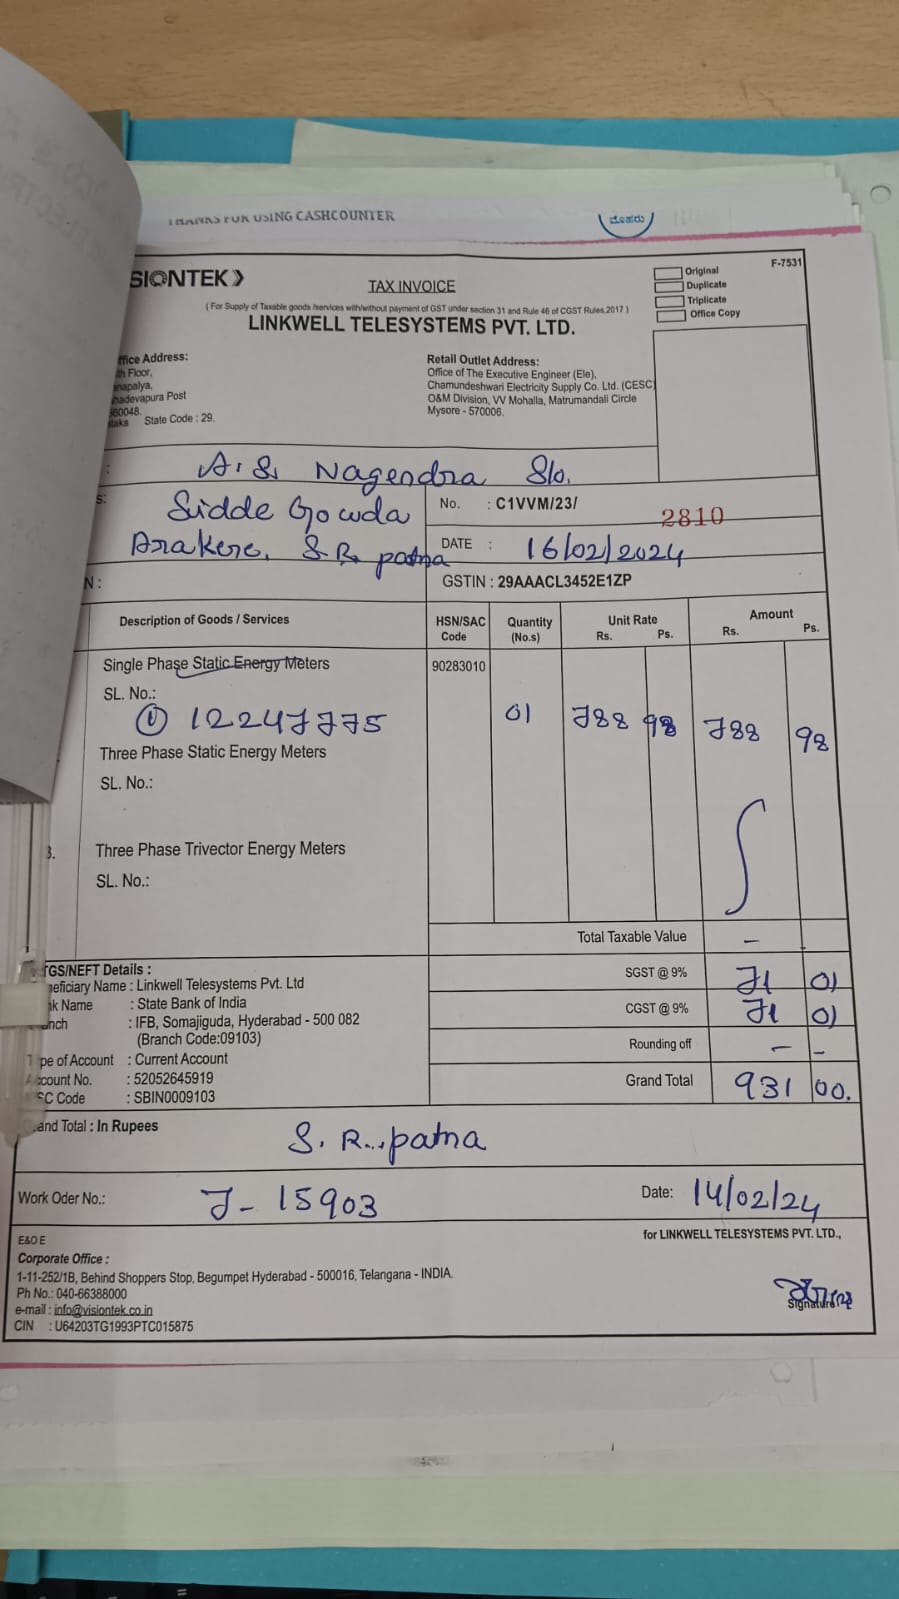 THANKS FOR USING CASHCOUNTER
F-7531
SIONTEK
TAX INVOICE
Original
Duplicate
Triplicate
Office Copy
( For Supply of Taxable goods /services with/without payment of GST under section 31 and Rule 46 of CGST Rules,2017 )
LINKWELL TELESYSTEMS PVT. LTD.
ffice Address:
th Floor,
napalya,
hadevapura Post
560048.
taka State Code : 29.
Retail Outlet Address:
Office of The Executive Engineer (Ele),
Chamundeshwari Electricity Supply Co. Ltd. (CESC)
O&M Division, VV Mohalla, Matrumandali Circle
Mysore - 570006.
: A.S. Nagendra S/o.
s: Sidde Gowda
Arakere, S.R. patna
No. : C1VVM/23/ 2810
DATE : 16/02/2024
N :
GSTIN : 29AAACL3452E1ZP
Description of Goods / Services HSN/SAC Code Quantity (No.s) Unit Rate Rs. Ps. Amount Rs. Ps.
Single Phase Static Energy Meters 90283010
SL. No.:
① 12247775 01 788 98 788 98
Three Phase Static Energy Meters
SL. No.:
3. Three Phase Trivector Energy Meters
SL. No.:
Total Taxable Value –
TGS/NEFT Details :
neficiary Name : Linkwell Telesystems Pvt. Ltd
nk Name : State Bank of India
anch : IFB, Somajiguda, Hyderabad - 500 082
(Branch Code:09103)
Type of Account : Current Account
Account No. : 52052645919
SC Code : SBIN0009103
SGST @ 9% 71 01
CGST @ 9% 71 01
Rounding off – –
Grand Total 931 00.
and Total : In Rupees
S. R. patna
Work Oder No.: J- 15903 Date: 14/02/24
E&O E
for LINKWELL TELESYSTEMS PVT. LTD.,
Corporate Office :
1-11-252/1B, Behind Shoppers Stop, Begumpet Hyderabad - 500016, Telangana - INDIA.
Ph No.: 040-66388000
e-mail : info@visiontek.co.in
CIN : U64203TG1993PTC015875
Signature